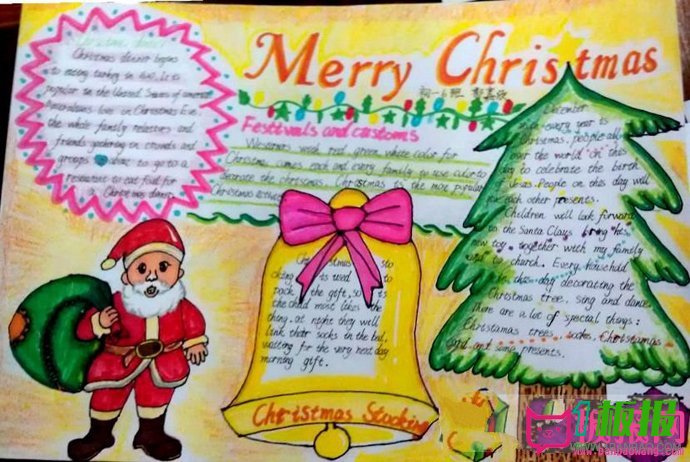 Merry Christmas
Christmas dinner
Christmas dinner begins
to eating turkey in
popular in the United States of
Americans love in Christmas Eve.
the whole family relatives and
friends gathering in crowds and
groups to go to a
restaurant to eat food for
a Christmas dinner.
初一6班
Festivals and customs
Westerners red green white color for
Christmas comes each and every family use color to
decorate the christmas. Christmas is the most popular
Christmas
Christmas sto
cking is used to
pack the gift, so is
the child most likes the
thing. at night they will
their socks in the
waiting for the very next day
morning gift.
Christmas Stocking
December
every year is
Christmas, people all
over the world on this
day to celebrate the birth
of Jesus. People on this day will
each other presents.
Children will look forward
to the Santa Claus bring his
new toy. together with my family
to church. Every household
in this day decorating the
Christmas tree. sing and dance.
There are a lot of special things:
Christmas trees, socks, Christmas
and some presents.
板报